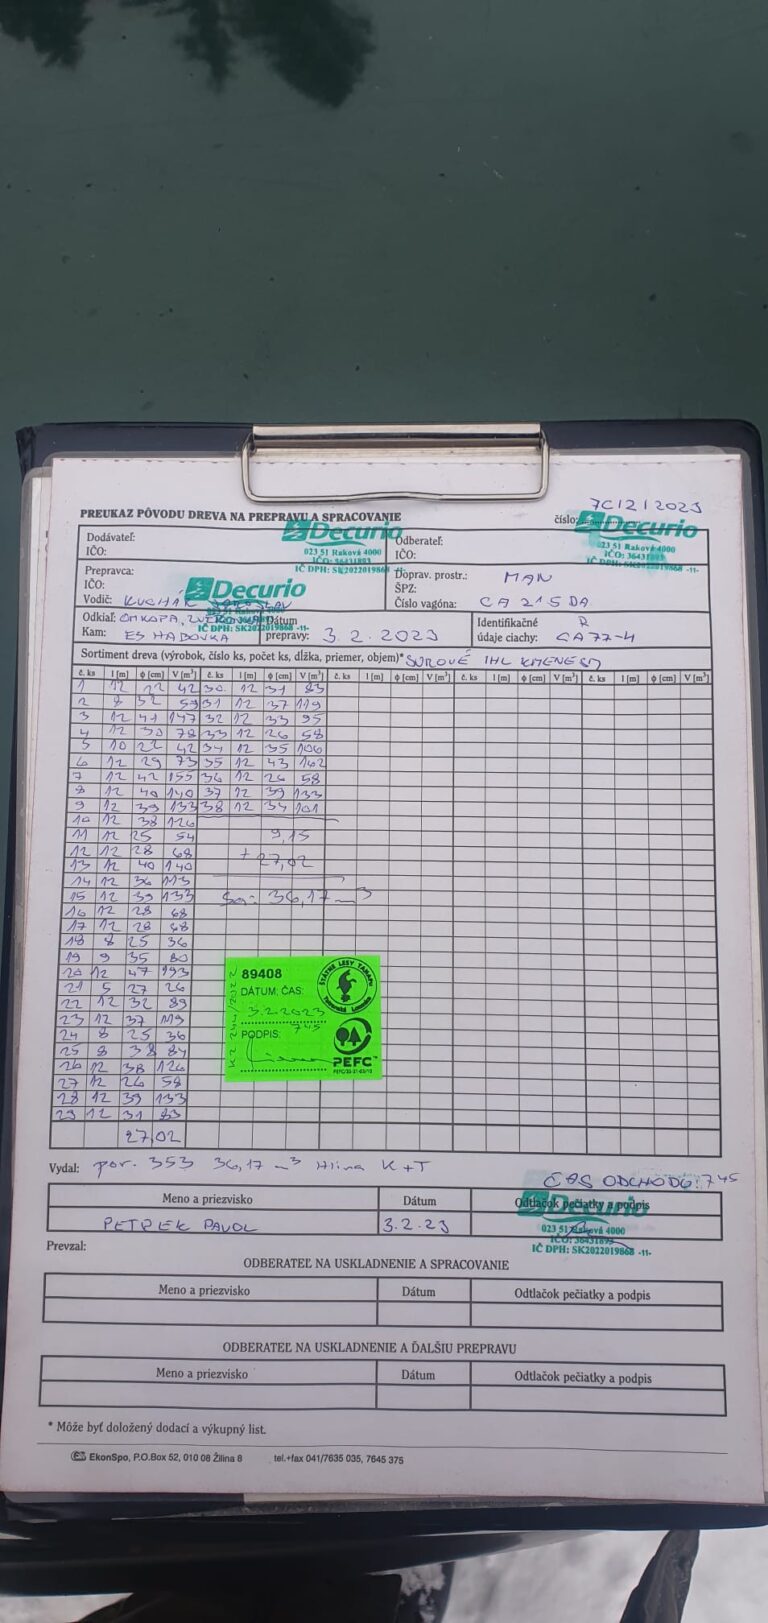 7C12/2023
PREUKAZ PÔVODU DREVA NA PREPRAVU A SPRACOVANIE číslo:
Decurio
023 51 Raková 4000
IČO: 36431893
IČ DPH: SK2022019868 -11-
Decurio
023 51 Raková 4000
IČO: 36431893
IČ DPH: SK2022019868 -11-
Dodávateľ:
IČO:
Odberateľ:
IČO:
Prepravca:
IČO:
Vodič: KUCHÁR JAROSLAV
Decurio
IČ DPH: SK2022019868 -11-
Doprav. prostr.: MAN
ŠPZ:
Číslo vagóna: CA 215 DA
Odkiaľ:
Kam: ES HADOVKA
Dátum
prepravy: 3.2.2023
Identifikačné R
údaje ciachy: CA77-4
Sortiment dreva (výrobok, číslo ks, počet ks, dĺžka, priemer, objem)* SUROVÉ IHL KMENE
č. ks l [m] ϕ [cm] V [m³] č. ks l [m] ϕ [cm] V [m³] č. ks l [m] ϕ [cm] V [m³] č. ks l [m] ϕ [cm] V [m³] č. ks l [m] ϕ [cm] V [m³]
1 12 22 42 30 12 31 83
2 8 32 59 31 12 37 119
3 12 41 147 32 12 33 95
4 12 30 78 33 12 26 58
5 10 22 42 34 12 35 106
6 12 29 73 35 12 43 162
7 12 42 155 36 12 26 58
8 12 40 140 37 12 39 133
9 12 39 133 38 12 34 101
10 12 38 126
11 12 25 54 9,15
12 12 28 68 + 27,02
13 12 40 140
14 12 36 113
15 12 39 133 Sa: 36,17 m³
16 12 28 68
17 12 28 68
18 8 25 36
19 9 35 80
20 12 47 193
21 5 27 26
22 12 32 89
23 12 37 119
24 8 25 36
25 8 38 84
26 12 38 126
27 12 26 58
28 12 39 133
29 12 31 83
27,02
89408
DÁTUM, ČAS:
3.2.2023
7 45
PODPIS:
ŠTÁTNE LESY TANAPU
Tatranská Lomnica
PEFC™
Vydal: por. 353 36,17 m³ Hlina K+T
ČAS ODCHODU: 7 45
Meno a priezvisko Dátum Odtlačok pečiatky a podpis
PETREK PAVOL 3.2.23
Decurio
023 51 Raková 4000
IČO: 36431893
IČ DPH: SK2022019868 -11-
Prevzal:
ODBERATEĽ NA USKLADNENIE A SPRACOVANIE
Meno a priezvisko Dátum Odtlačok pečiatky a podpis
ODBERATEĽ NA USKLADNENIE A ĎALŠIU PREPRAVU
Meno a priezvisko Dátum Odtlačok pečiatky a podpis
* Môže byť doložený dodací a výkupný list.
EkonSpo, P.O.Box 52, 010 08 Žilina 8 tel.+fax 041/7635 035, 7645 375